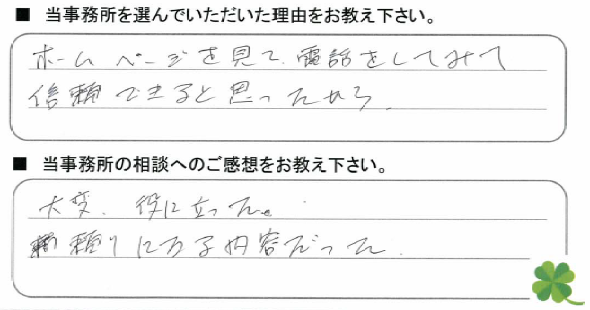 ■ 当事務所を選んでいただいた理由をお教え下さい。
ホームページを見て、電話をしてみて
信頼できると思ったから。
■ 当事務所の相談へのご感想をお教え下さい。
大変、役に立った。
頼りになる内容だった。